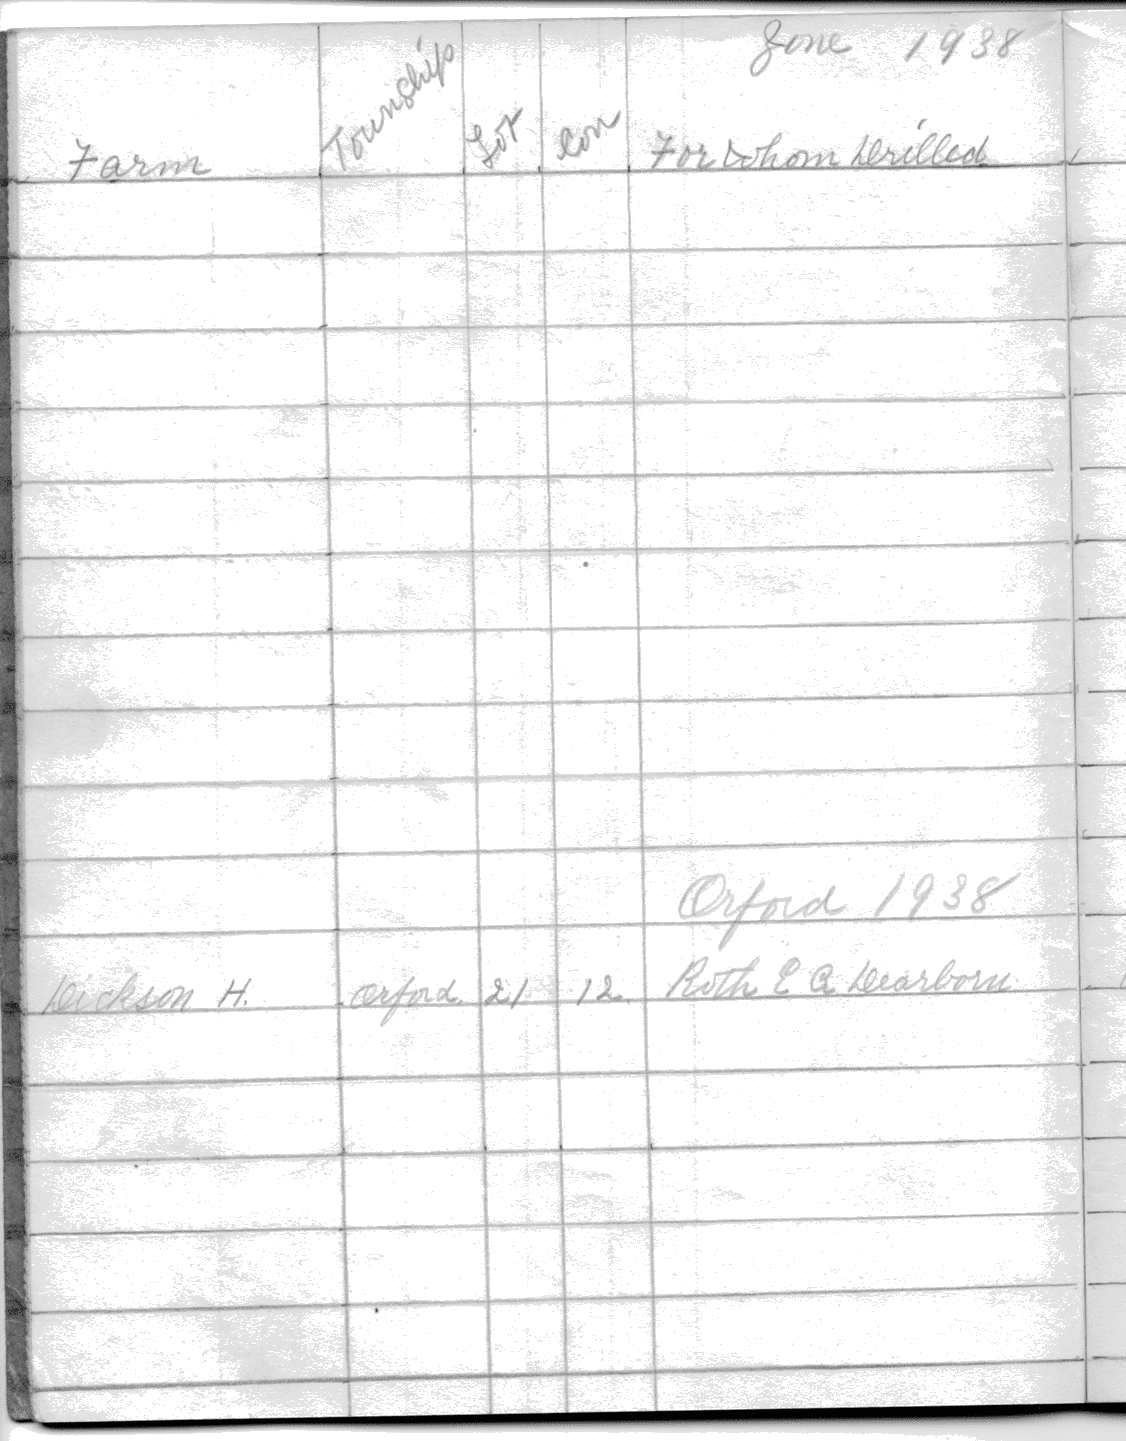 June 1938
Farm Township Lot Con For Whom Drilled
Orford 1938
Dickson H. Orford 21 12 Roth E A Dearborn